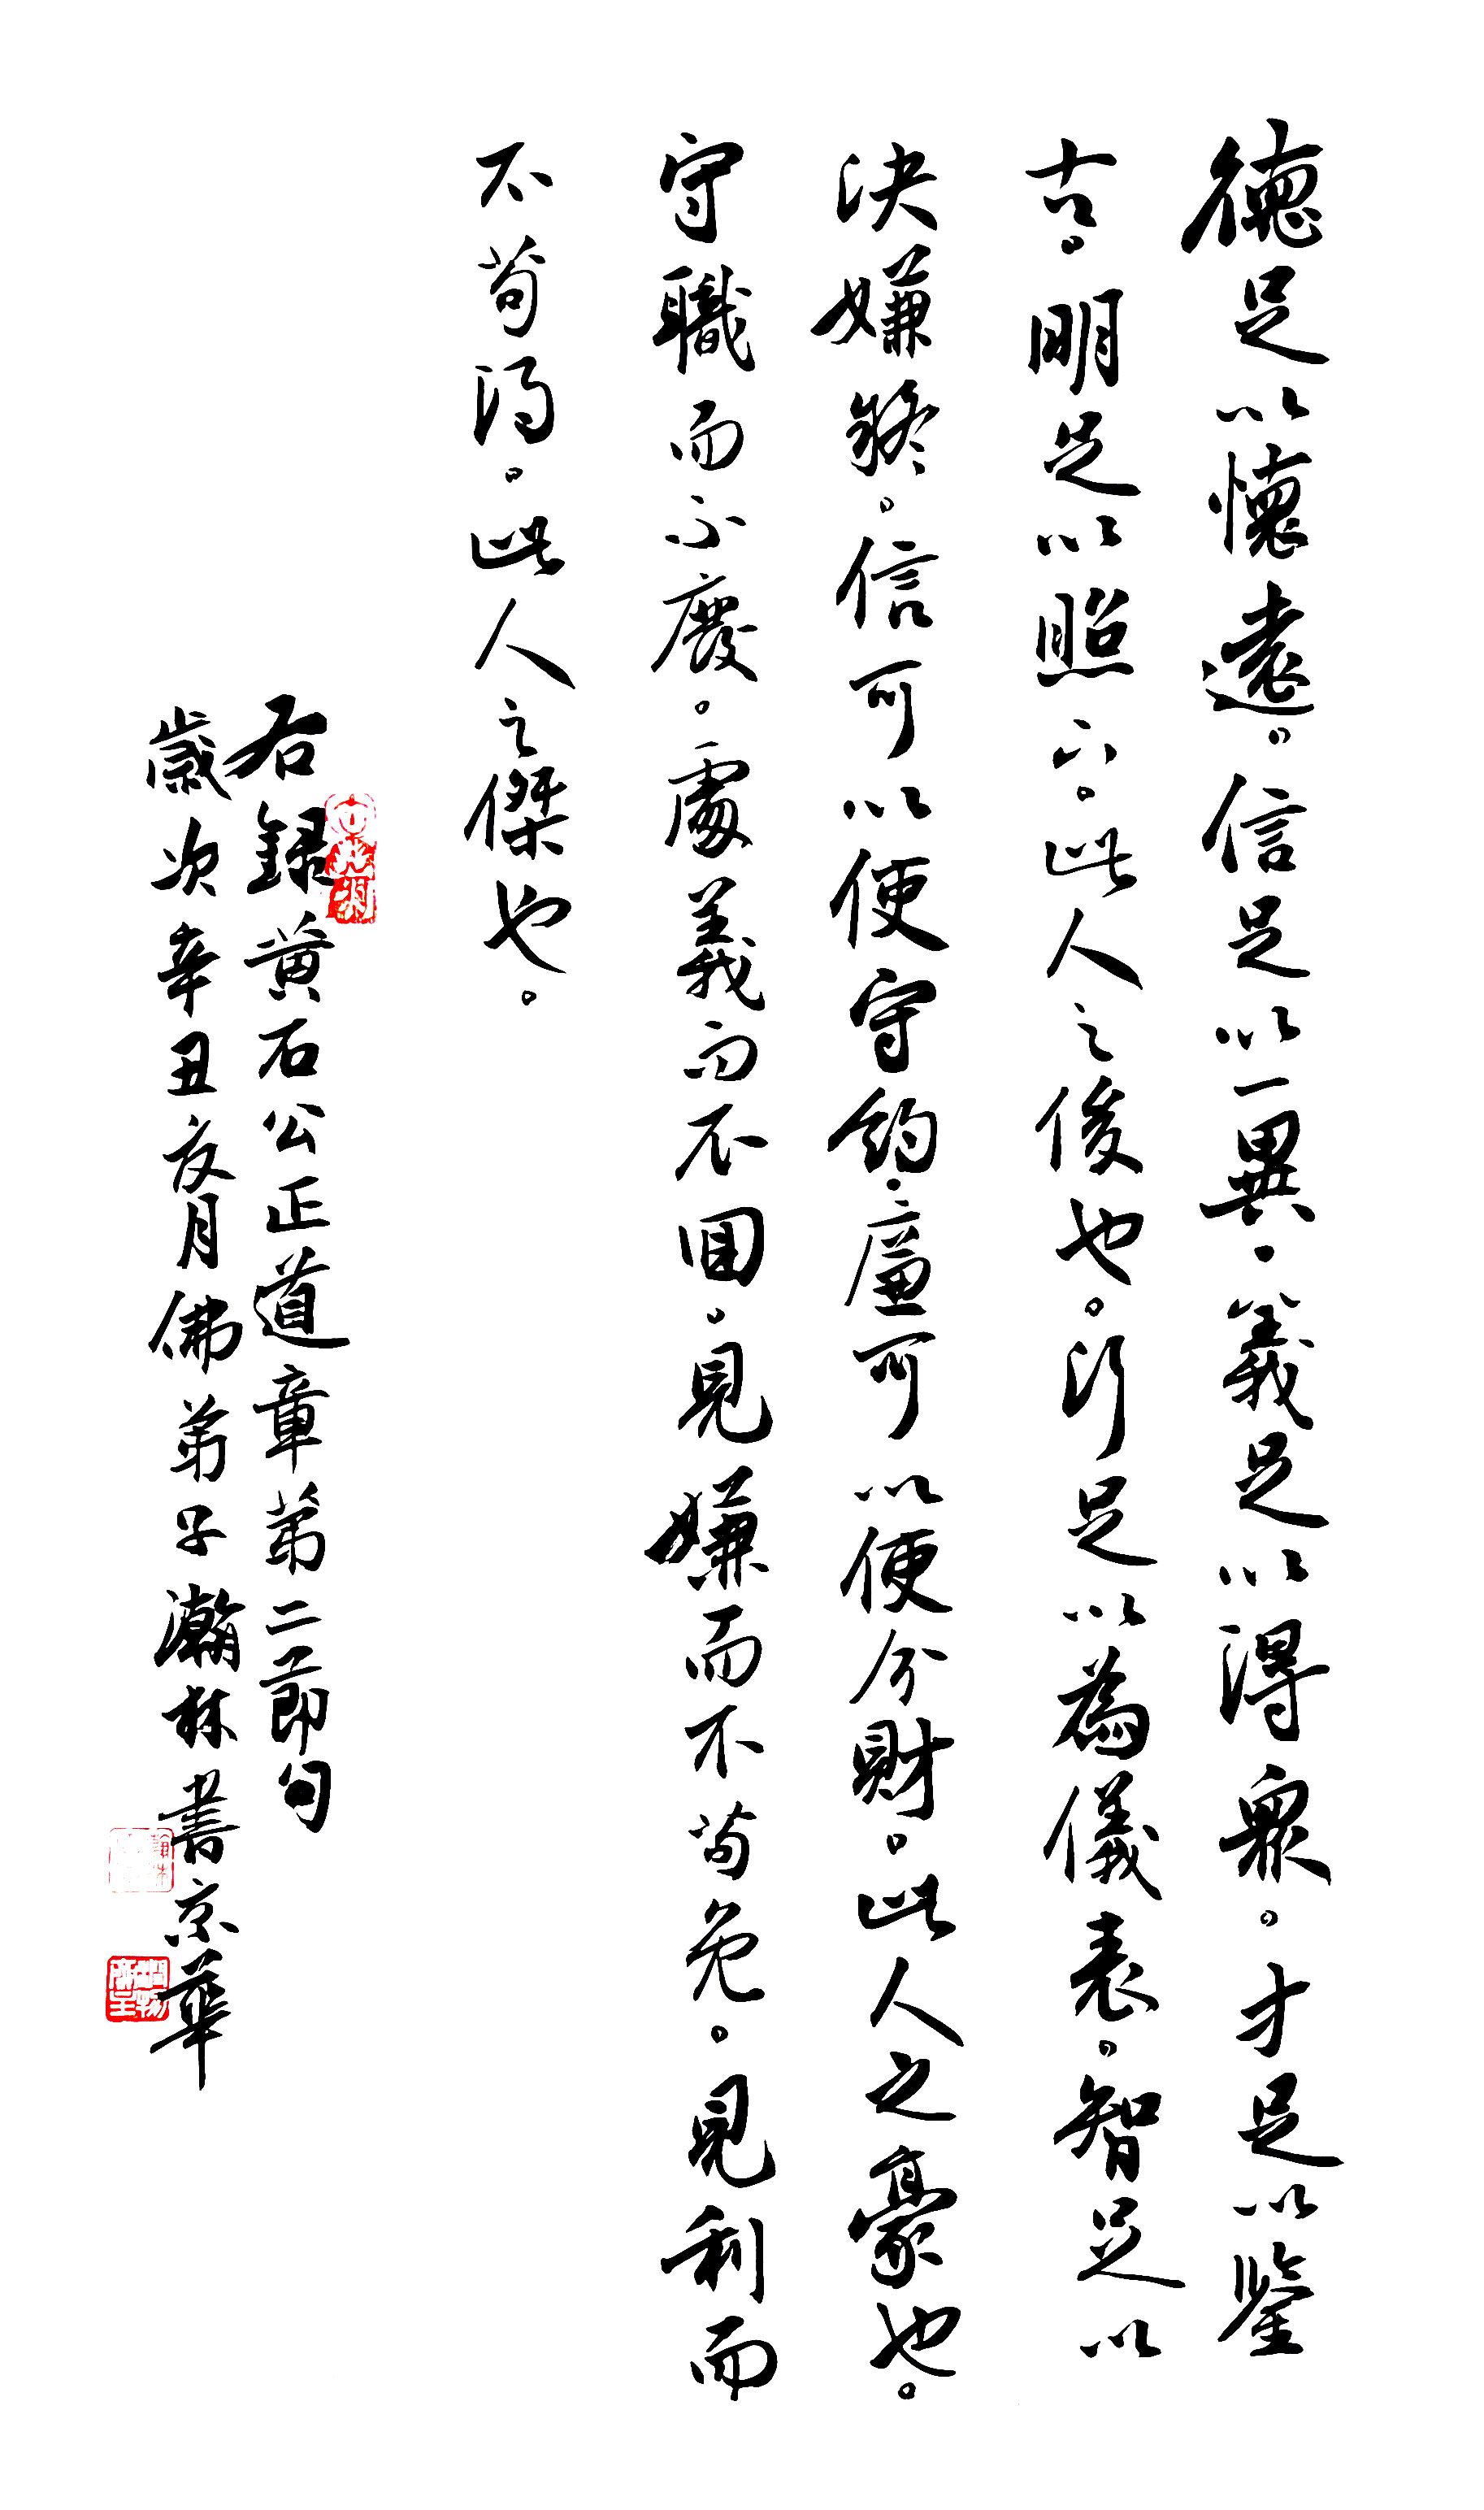 德足以懷遠。信足以一異。義足以得眾。才足以鑒
古。明足以照下。此人之俊也。行足以為儀表。智足以
決嫌疑。信可以使守約。廉可以使分財。此人之豪也。
守職而不廢。處義而不回。見嫌而不苟免。見利而
不苟得。此人之傑也。
右錄黃石公正道章第二節句
歲次辛丑夏月佛弟子瀚林書京華